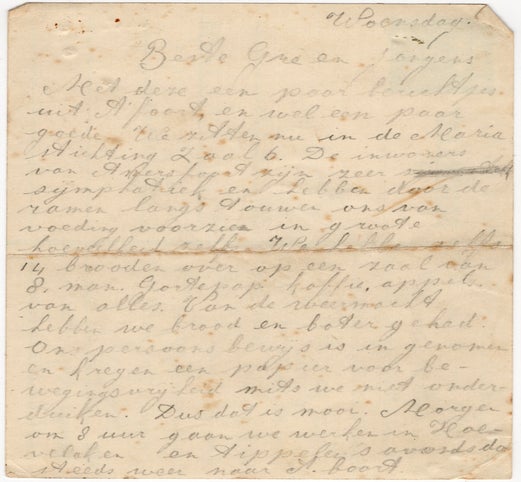 Woensdag.
Beste Gre en Jongens
Met deze een paar berichtjes
uit A'foort, en wel een paar
goede. We zitten nu in de Maria
stichting Zaal 6. De inwoners
van Amersfoort zijn zeer
symphatiek en hebben door de
ramen langs touwen ons van
voeding voorzien in groote
hoeveelheid zelfs. We hebben zelfs
14 brooden over op een zaal van
8. man. Gortepap koffie, appels.
van alles. Van de weermacht
hebben we brood en boter gehad.
Ons persoons bewijs is in genomen
en kregen een papier voor be-
wegingsvrijheid mits we niet onder-
duiken. Dus dat is mooi. Morgen
om 8 uur gaan we werken in Hoe-
velaken en tippelen s avonds
steeds weer naar A. foort.